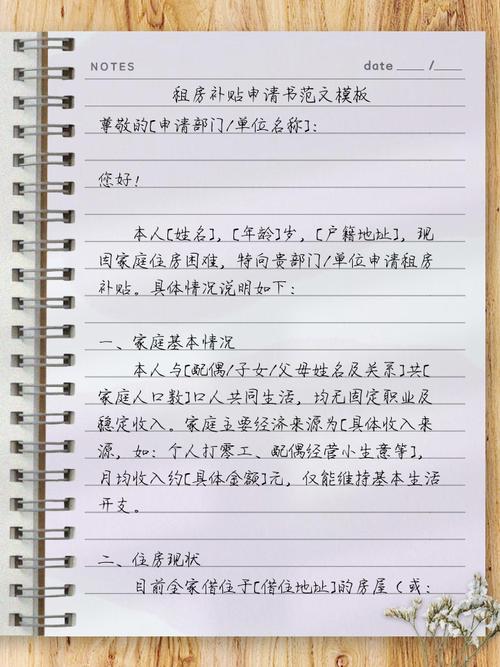 NOTES
date ____ /____
租房补贴申请书范文模板
尊敬的[申请部门/单位名称]：
您好！
本人[姓名]，[年龄]岁，[户籍地址]，现
因家庭住房困难，特向贵部门/单位申请租房
补贴。具体情况说明如下：
一、家庭基本情况
本人与[配偶/子女/父母姓名及关系]共[
家庭人口数]口人共同生活，均无固定职业及
稳定收入。家庭主要经济来源为[具体收入来
源，如：个人打零工、配偶经营小生意等]，
月均收入约[具体金额]元，仅能维持基本生活
开支。
二、住房现状
目前全家借住于[借住地址]的房屋（或：